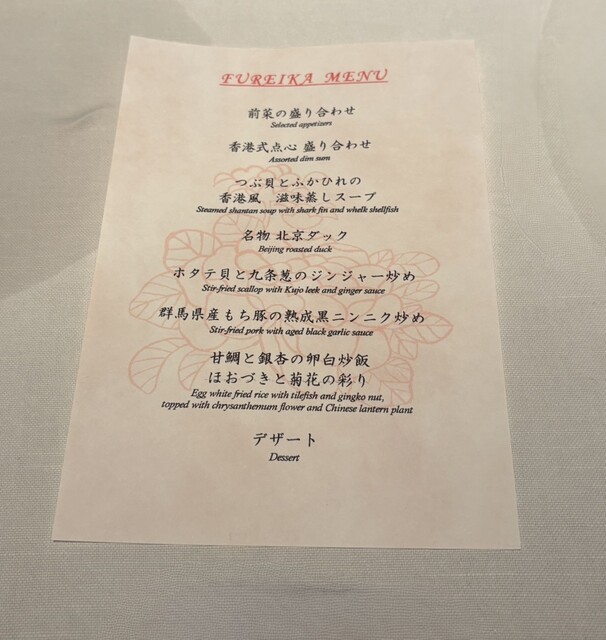 FUREIKA MENU
前菜の盛り合わせ
Selected appetizers
香港式点心 盛り合わせ
Assorted dim sum
つぶ貝とふかひれの
香港風　滋味蒸しスープ
Steamed shantan soup with shark fin and whelk shellfish
名物 北京ダック
Beijing roasted duck
ホタテ貝と九条葱のジンジャー炒め
Stir-fried scallop with Kujo leek and ginger sauce
群馬県産もち豚の熟成黒ニンニク炒め
Stir-fried pork with aged black garlic sauce
甘鯛と銀杏の卵白炒飯
ほおづきと菊花の彩り
Egg white fried rice with tilefish and gingko nut,
topped with chrysanthemum flower and Chinese lantern plant
デザート
Dessert